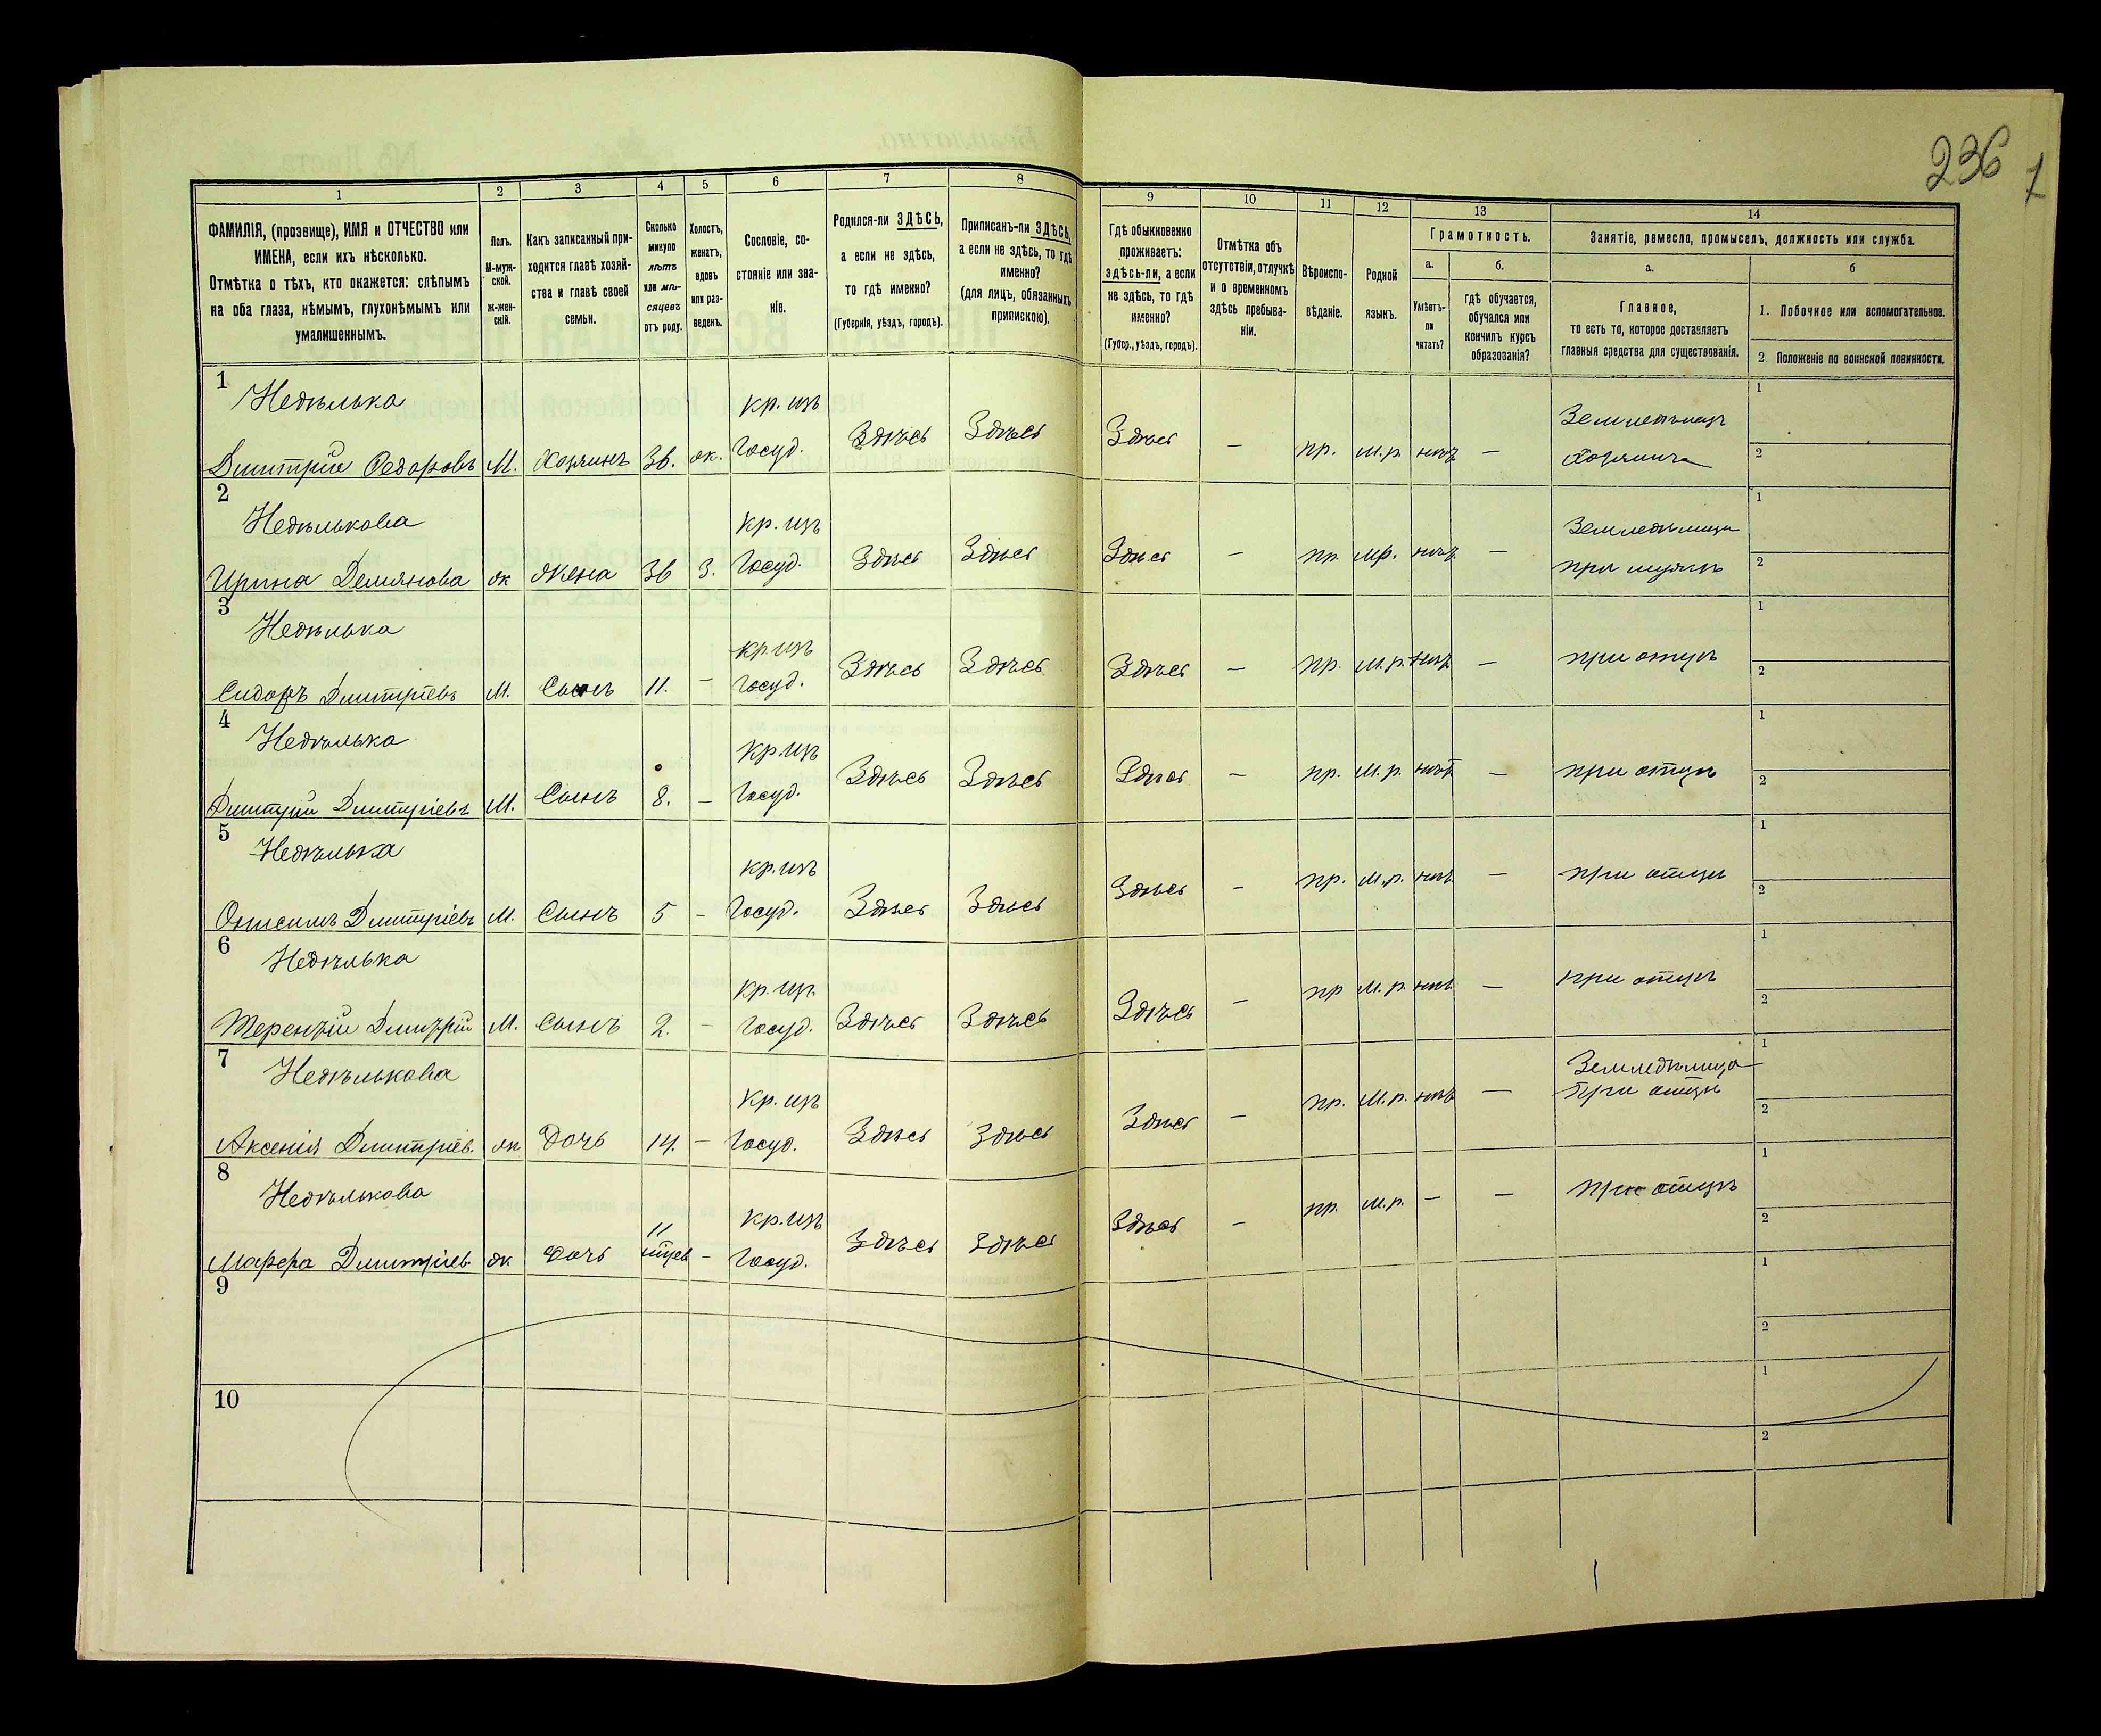 236
1
1
2
3
4
5
6
7
8
9
10
11
12
13
14
ФАМИЛІЯ, (прозвище), ИМЯ и ОТЧЕСТВО или
ИМЕНА, если ихъ нѣсколько.
Отмѣтка о тѣхъ, кто окажется: слѣпымъ
на оба глаза, нѣмымъ, глухонѣмымъ или
умалишеннымъ.
Полъ.
М-муж-
ской.
ж-жен-
скій.
Какъ записанный при-
ходится главѣ хозяй-
ства и главѣ своей
семьи.
Сколько
минуло
лѣтъ
или мѣ-
сяцевъ
отъ роду.
Холостъ,
женатъ,
вдовъ
или раз-
веденъ.
Сословіе, со-
стояніе или зва-
ніе.
Родился-ли ЗДѢСЬ,
а если не здѣсь,
то гдѣ именно?
(Губернія, уѣздъ, городъ).
Приписанъ-ли ЗДѢСЬ,
а если не здѣсь, то гдѣ
именно?
(для лицъ, обязанныхъ
припискою).
Гдѣ обыкновенно
проживаетъ:
здѣсь-ли, а если
не здѣсь, то гдѣ
именно?
(Губер., уѣздъ, городъ).
Отмѣтка объ
отсутствіи, отлучкѣ
и о временномъ
здѣсь пребыва-
ніи.
Вѣроиспо-
вѣданіе.
Родной
языкъ.
Грамотность.
а.
б.
Умѣетъ-
ли
читать?
гдѣ обучается,
обучался или
кончилъ курсъ
образованія?
Занятіе, ремесло, промыселъ, должность или служба.
а.
б
Главное,
то есть то, которое доставляетъ
главныя средства для существованія.
1. Побочное или вспомогательное.
2 Положеніе по воинской повинности.
1
Недѣлька
кр. изъ
Земледѣлецъ
1
Дмитрій Федоровъ М. Хозяинъ 36. ж. Госуд. Здѣсь Здѣсь Здѣсь — пр. м.р. нѣтъ — Хозяинъ
2
2
Недѣлькова
кр. изъ
Земледѣлица
1
Ирина Демянова ж жена 36 З. Госуд. Здѣсь Здѣсь Здѣсь — пр. мр. нѣтъ — при мужѣ
2
3
Недѣлька
кр. изъ
1
Сидоръ Дмитріевъ М. Сынъ 11. — Госуд. Здѣсь Здѣсь Здѣсь — пр. м.р. нѣтъ — при отцѣ
2
4
Недѣлька
кр. изъ
1
Дмитрій Дмитріевъ М. Сынъ 8. — Госуд. Здѣсь Здѣсь Здѣсь — пр. м.р. нѣтъ — при отцѣ
2
5
Недѣлька
кр. изъ
1
Онисимъ Дмитріевъ М. Сынъ 5 — Госуд. Здѣсь Здѣсь Здѣсь — пр. м.р. нѣтъ — при отцѣ
2
6
Недѣлька
кр. изъ
1
Терентій Дмитрій М. Сынъ 2. — Госуд. Здѣсь Здѣсь Здѣсь — пр м.р. нѣтъ — при отцѣ
2
7
Недѣлькова
кр. изъ
Земледѣлица
1
Аксенія Дмитріев. ж Дочь 14. — Госуд. Здѣсь Здѣсь Здѣсь — пр. м.р. нѣтъ — при отцѣ
2
8
Недѣлькова
11
кр. изъ
1
Дмитріев. ж Дочь — Госуд. Здѣсь Здѣсь Здѣсь — пр. м.р. — — при отцѣ
2
9
1
2
10
1
2